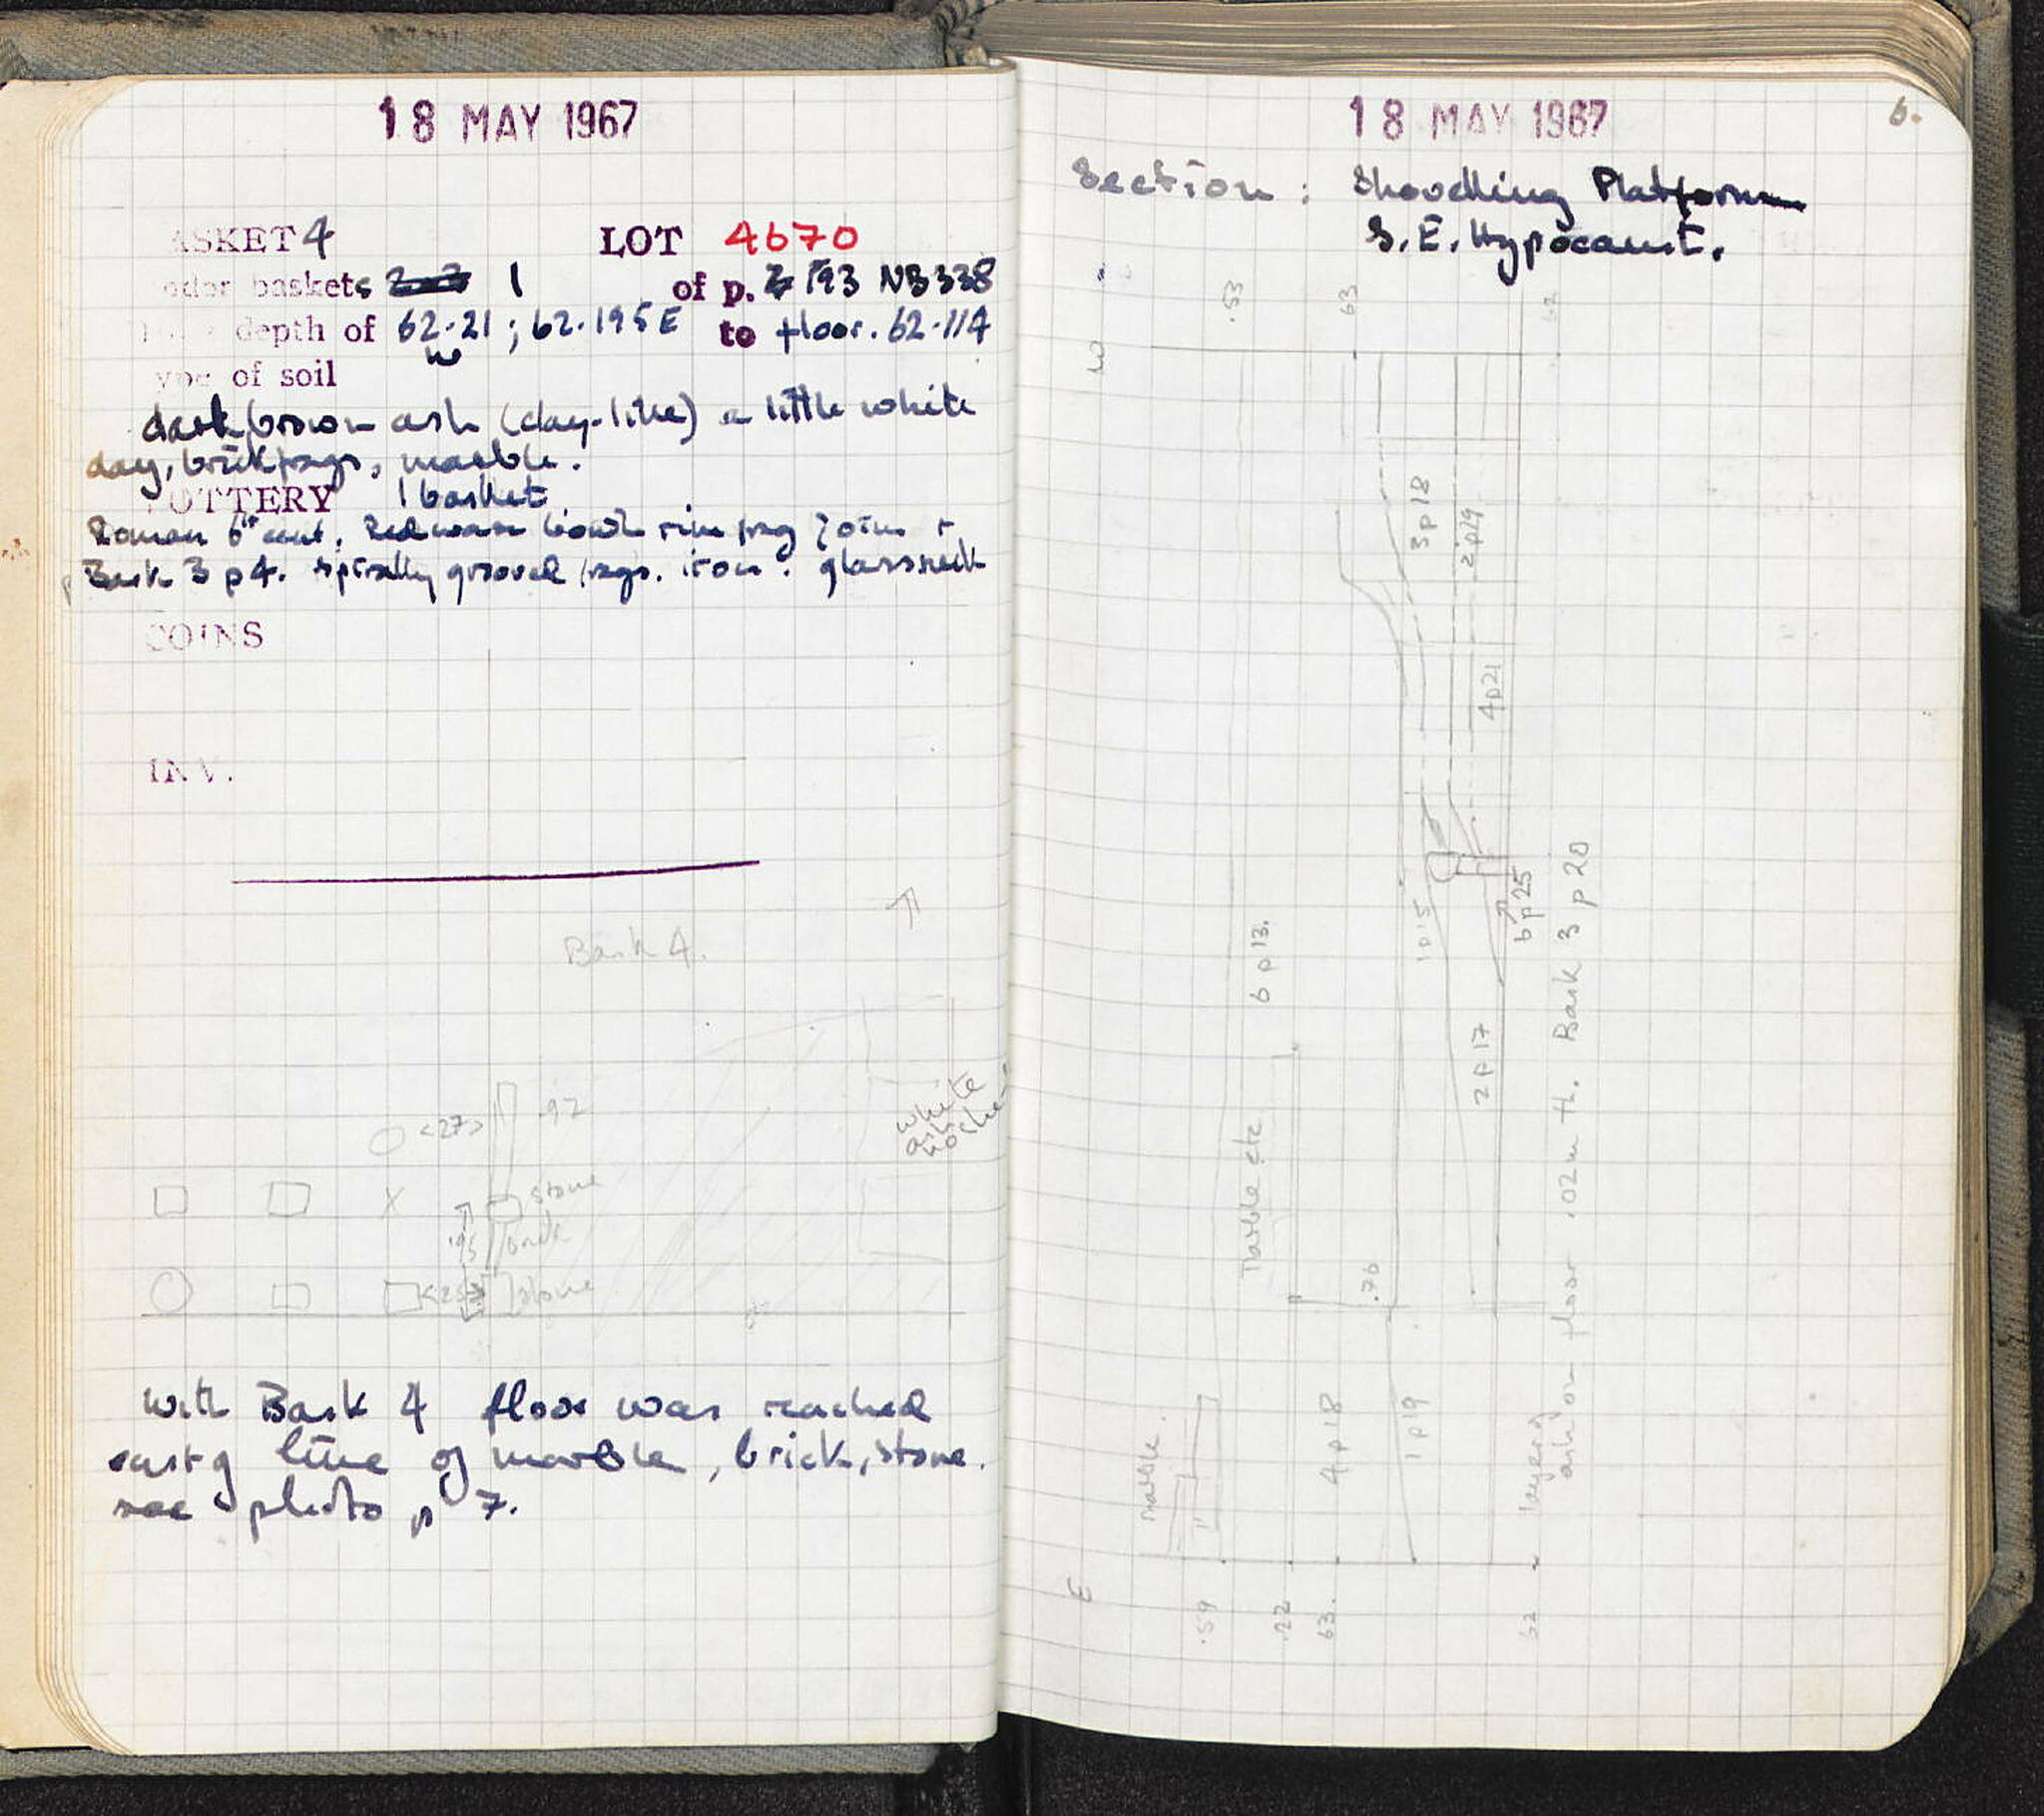 18 MAY 1967
ASKET 4 LOT 4670
oder baskets 1 of p. 193 NB 338
depth of 62.21 ; 62.195 E to floor. 62.114
W
ype of soil
dark brown ash (clay-like) a little white
clay, brick frags, marble.
POTTERY 1 basket
Roman 6th cent. Red ware bowl rim frag joins
Bask 3 p 4. Spirally grooved frags. iron. glass neck
COINS
INV.
Bask 4.
white
ash
.92
<27>
stone
.95
brick
stone
with Bask 4 floor was reached
east of line of marble, brick, stone.
see photo p 7.
18 MAY 1967
6.
Section : Shovelling Platform
S.E. Hypocaust.
.53
63
62
W
3 p 18
2 p 19
4 p 21
1 p 15
6 p 25
6 p 13.
2 p 17
Marble etc
.76
layer of
ash on floor .02m th. Bask 3 p 20
marble.
4 p 18
1 p 19
E
.59
.22
63.
62